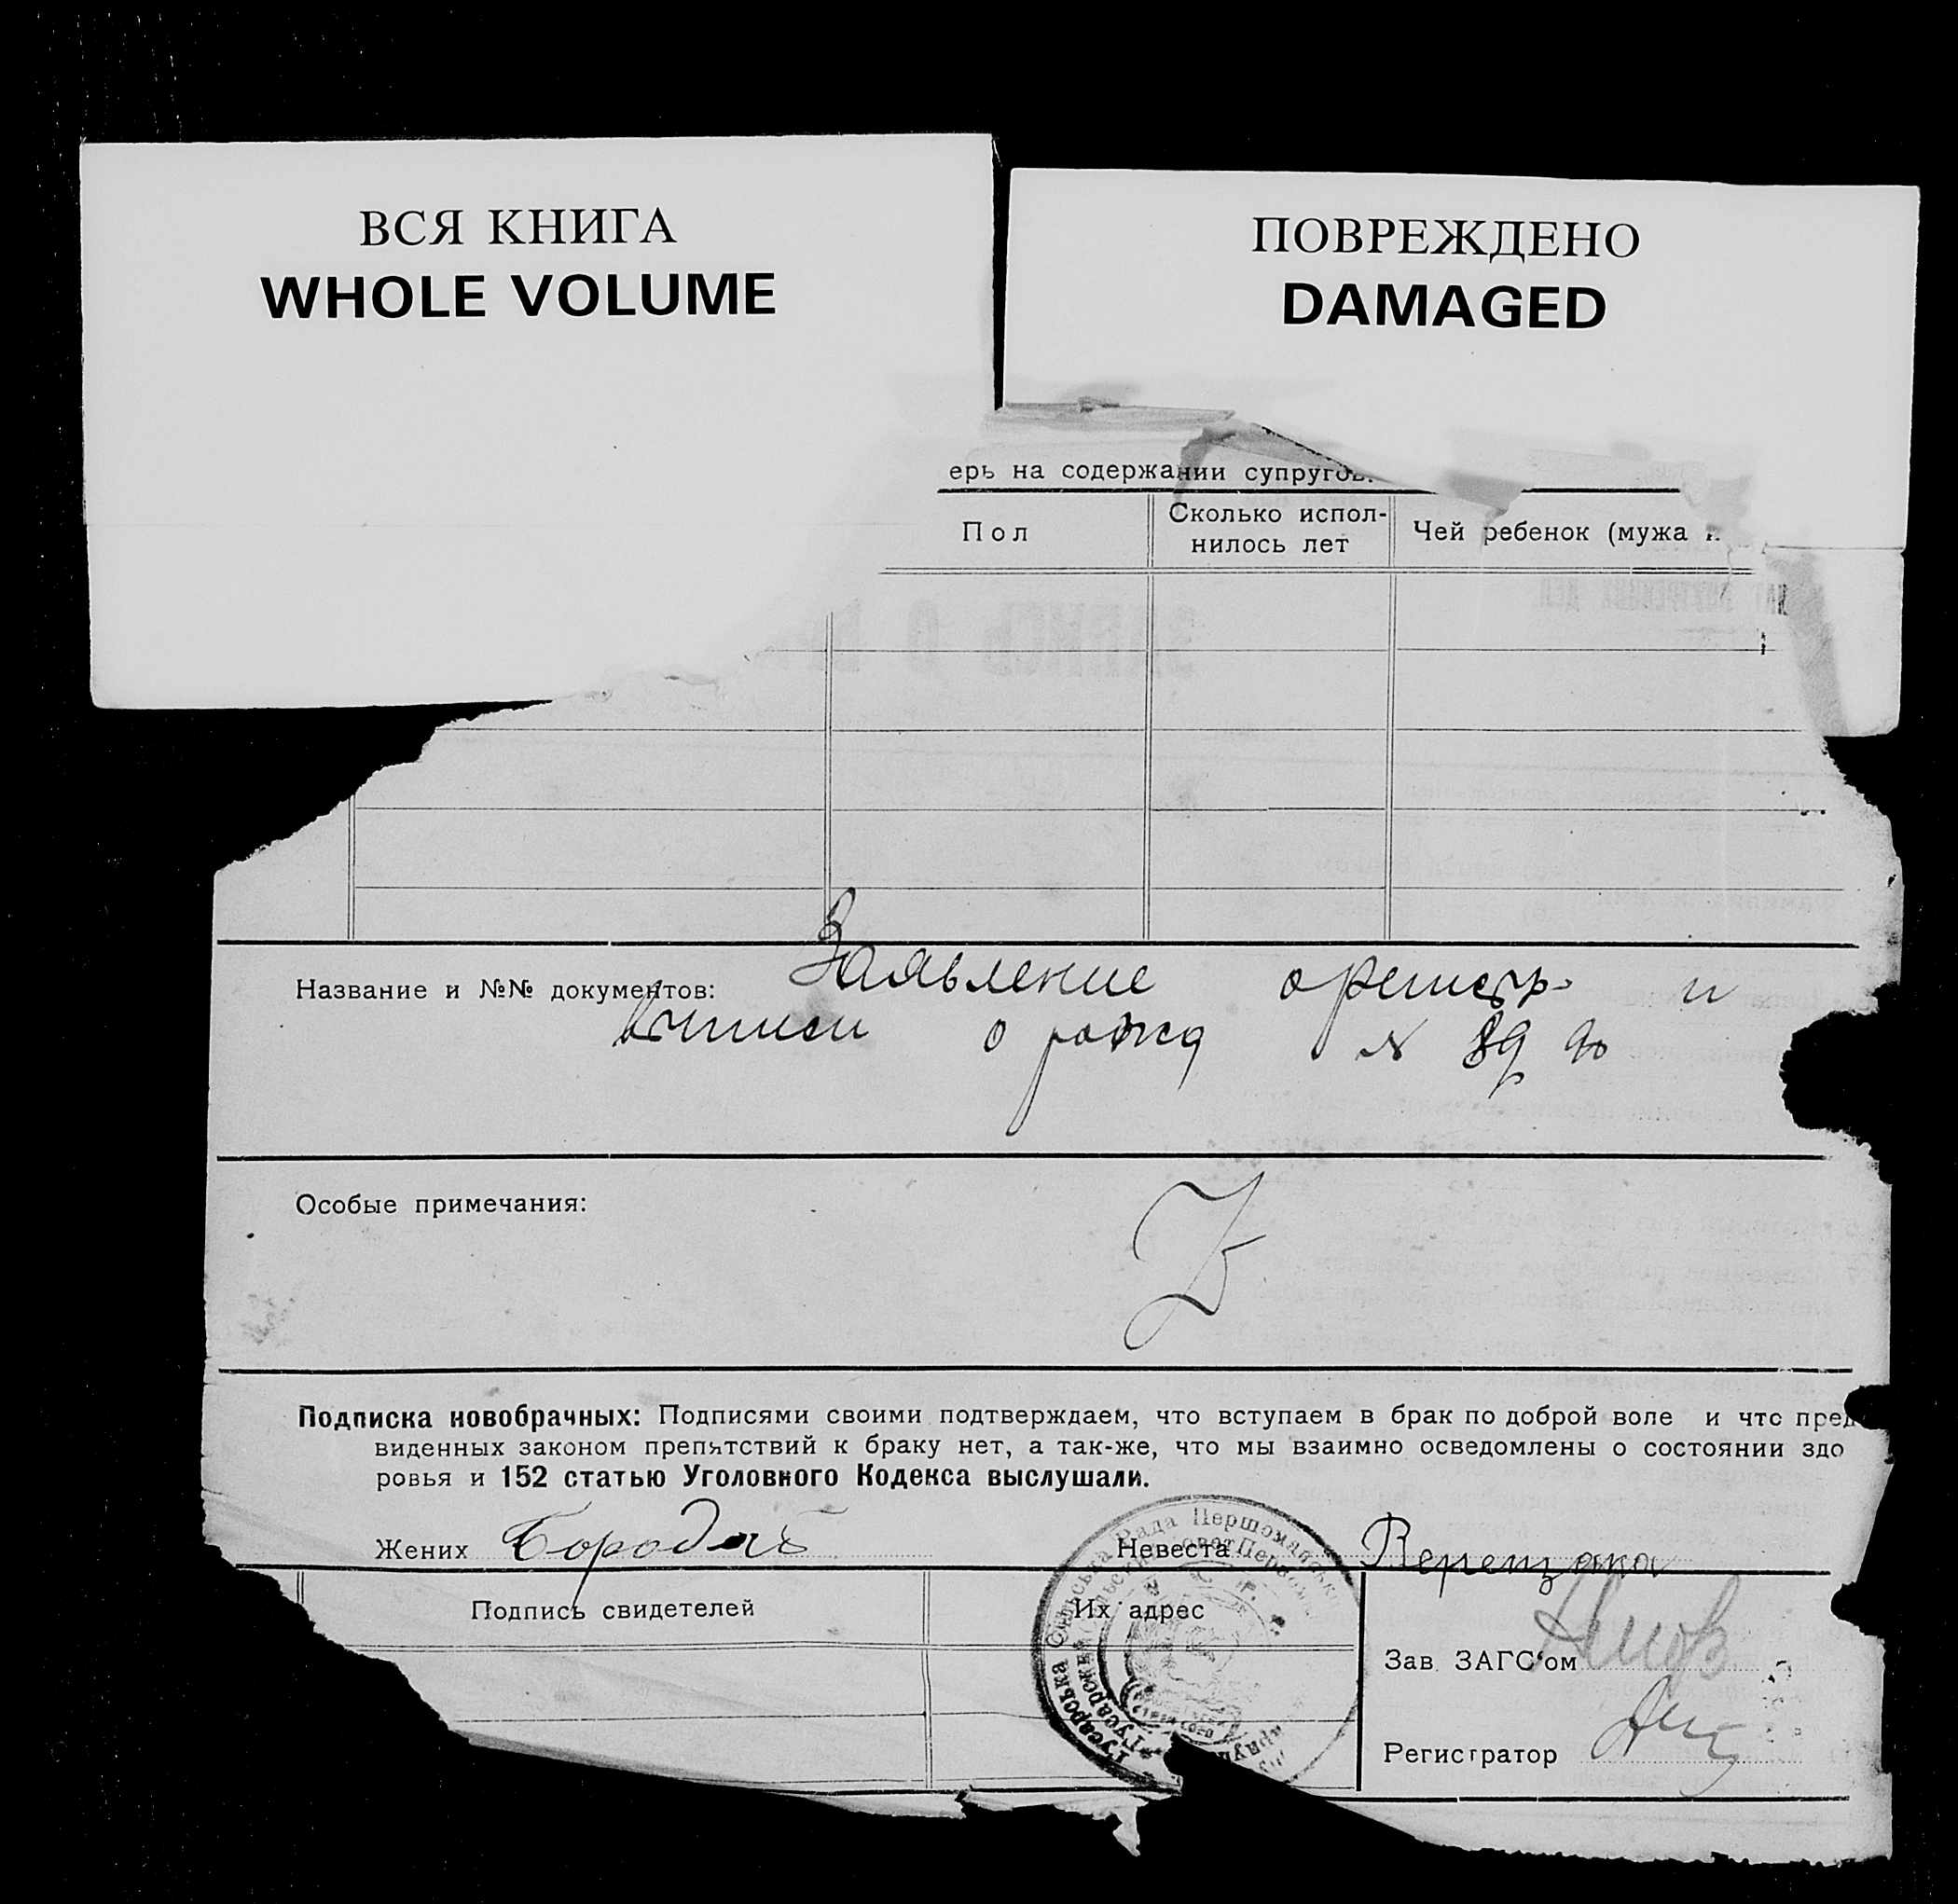 ВСЯ КНИГА
WHOLE VOLUME
ПОВРЕЖДЕНО
DAMAGED
ерь на содержании супругов.
Пол
Сколько испол-
нилось лет
Чей ребенок (мужа и
Название и №№ документов: Заявление о регистр. и
о рожд № 89
Особые примечания:
Подписка новобрачных: Подписями своими подтверждаем, что вступаем в брак по доброй воле и что пред
виденных законом препятствий к браку нет, а так-же, что мы взаимно осведомлены о состоянии здо
ровья и 152 статью Уголовного Кодекса выслушали.
Жених Невеста Верещака
Подпись свидетелей
Их адрес
Зав. ЗАГС'ом
Регистратор
Гусарська Сільська Рада Першомайськ